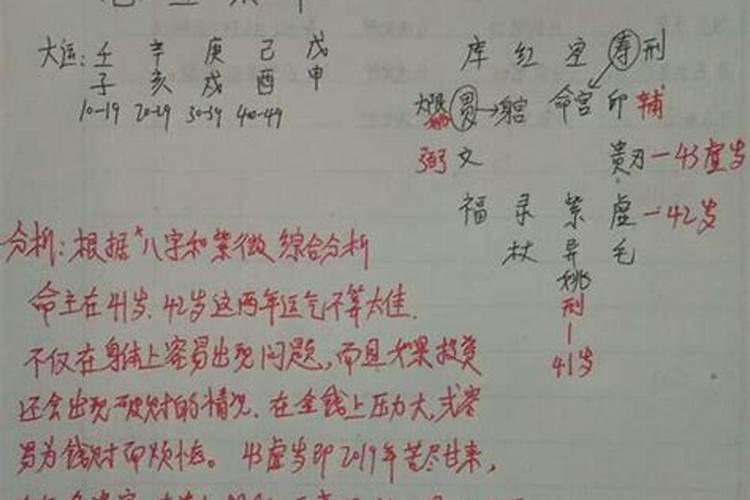 大运: 壬 辛 庚 己 戊
子 亥 戌 酉 申
10-19 20-29 30-39 40-49
库 红 空 寿 刑
大限 贵→ 命宫 印 辅
弼 文 贵刃-43虚岁
福 录 紫 虚-42岁
杖 异 毛
姚
刑
41岁
分析: 根据"八字和紫微综合分析
命主在41岁、42岁这两年运气不算太佳.
不仅在身体上容易出现问题,而且如果投资
还会出现破财的情况.在金钱上压力大,或容
易为钱财而烦恼。43虚岁即2019年苦尽甘来,